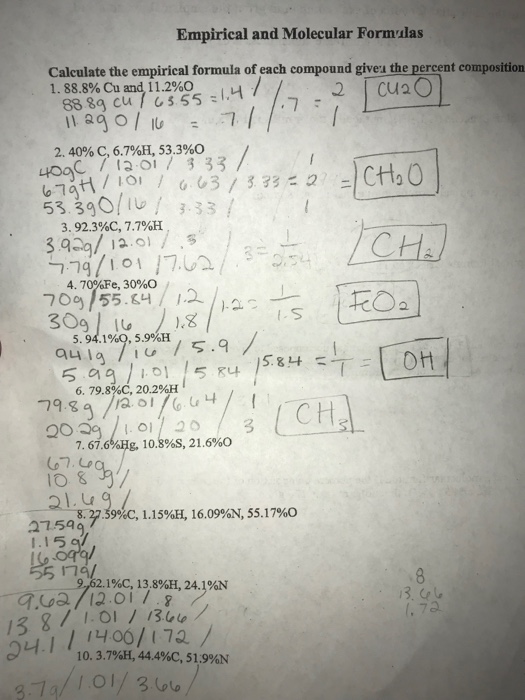 Empirical and Molecular Formulas
Calculate the empirical formula of each compound given the percent composition
1. 88.8% Cu and 11.2%O
88.8g Cu / 63.55 = 1.4 / .7 = 2
11.2g O / 16 = .7 / 1
Cu2O
2. 40% C, 6.7%H, 53.3%O
40gC / 12.01 / 3.33 / 1
6.7gH / 1.01 / 6.63 / 3.33 = 2 = CH2O
53.3gO / 16 / 3.33 / 1
3. 92.3%C, 7.7%H
3.92g / 12.01 / .3 1
7.7g / 1.01 / 7.62 / 3 = 2.54
CH2
4. 70%Fe, 30%O
70g / 55.84 / 1.2 / 1.2 = 1
30g / 16 / 1.8 / 1.5
FeO2
5. 94.1%O, 5.9%H
94.1g / 16 / 5.9 /
5.9g / 1.01 / 5.84 / 5.84 = 1/1 = OH
6. 79.8%C, 20.2%H
79.8g / 12.01 / 6.64 / 1
20.2g / 1.01 / 20 / 3
CH3
7. 67.6%Hg, 10.8%S, 21.6%O
67.6g /
10.8g /
21.6g /
8. 27.59%C, 1.15%H, 16.09%N, 55.17%O
27.59g /
1.15g /
16.09g /
55.17g /
9. 62.1%C, 13.8%H, 24.1%N
9.62 / 12.01 / .8
13.8 / 1.01 / 13.66 /
24.1 / 14.00 / 1.72 /
.8
13.66
1.72
10. 3.7%H, 44.4%C, 51.9%N
3.7g / 1.01 / 3.66 /